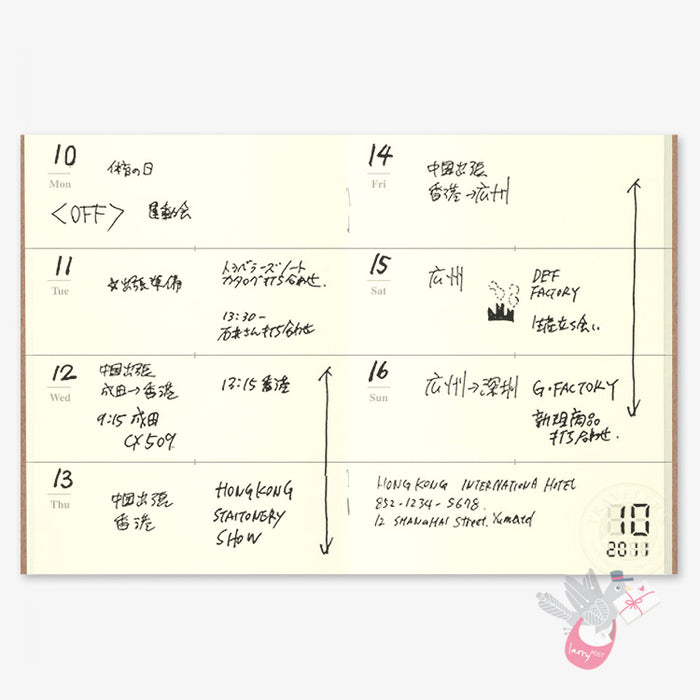 10
Mon
体育の日
<OFF> 運動会
11
Tue
出張準備
トラベラーズノート
カタログ打ち合わせ.
13:30-
石井さん打ち合わせ
12
Wed
中国出張
成田→香港
9:15 成田
CX 509
13:15 香港
13
Thu
中国出張
香港
HONG KONG
STAITONERY
SHOW
14
Fri
中国出張
香港→広州
15
Sat
広州
DEF
FACTORY
生産立ち会い
16
Sun
広州→深圳
G・FACTORY
新規商品
打ち合わせ.
HONG KONG INTERNATIONA HOTEL
852-1234-5678.
12 SHANGHAI Street.
10
2011
larry POST